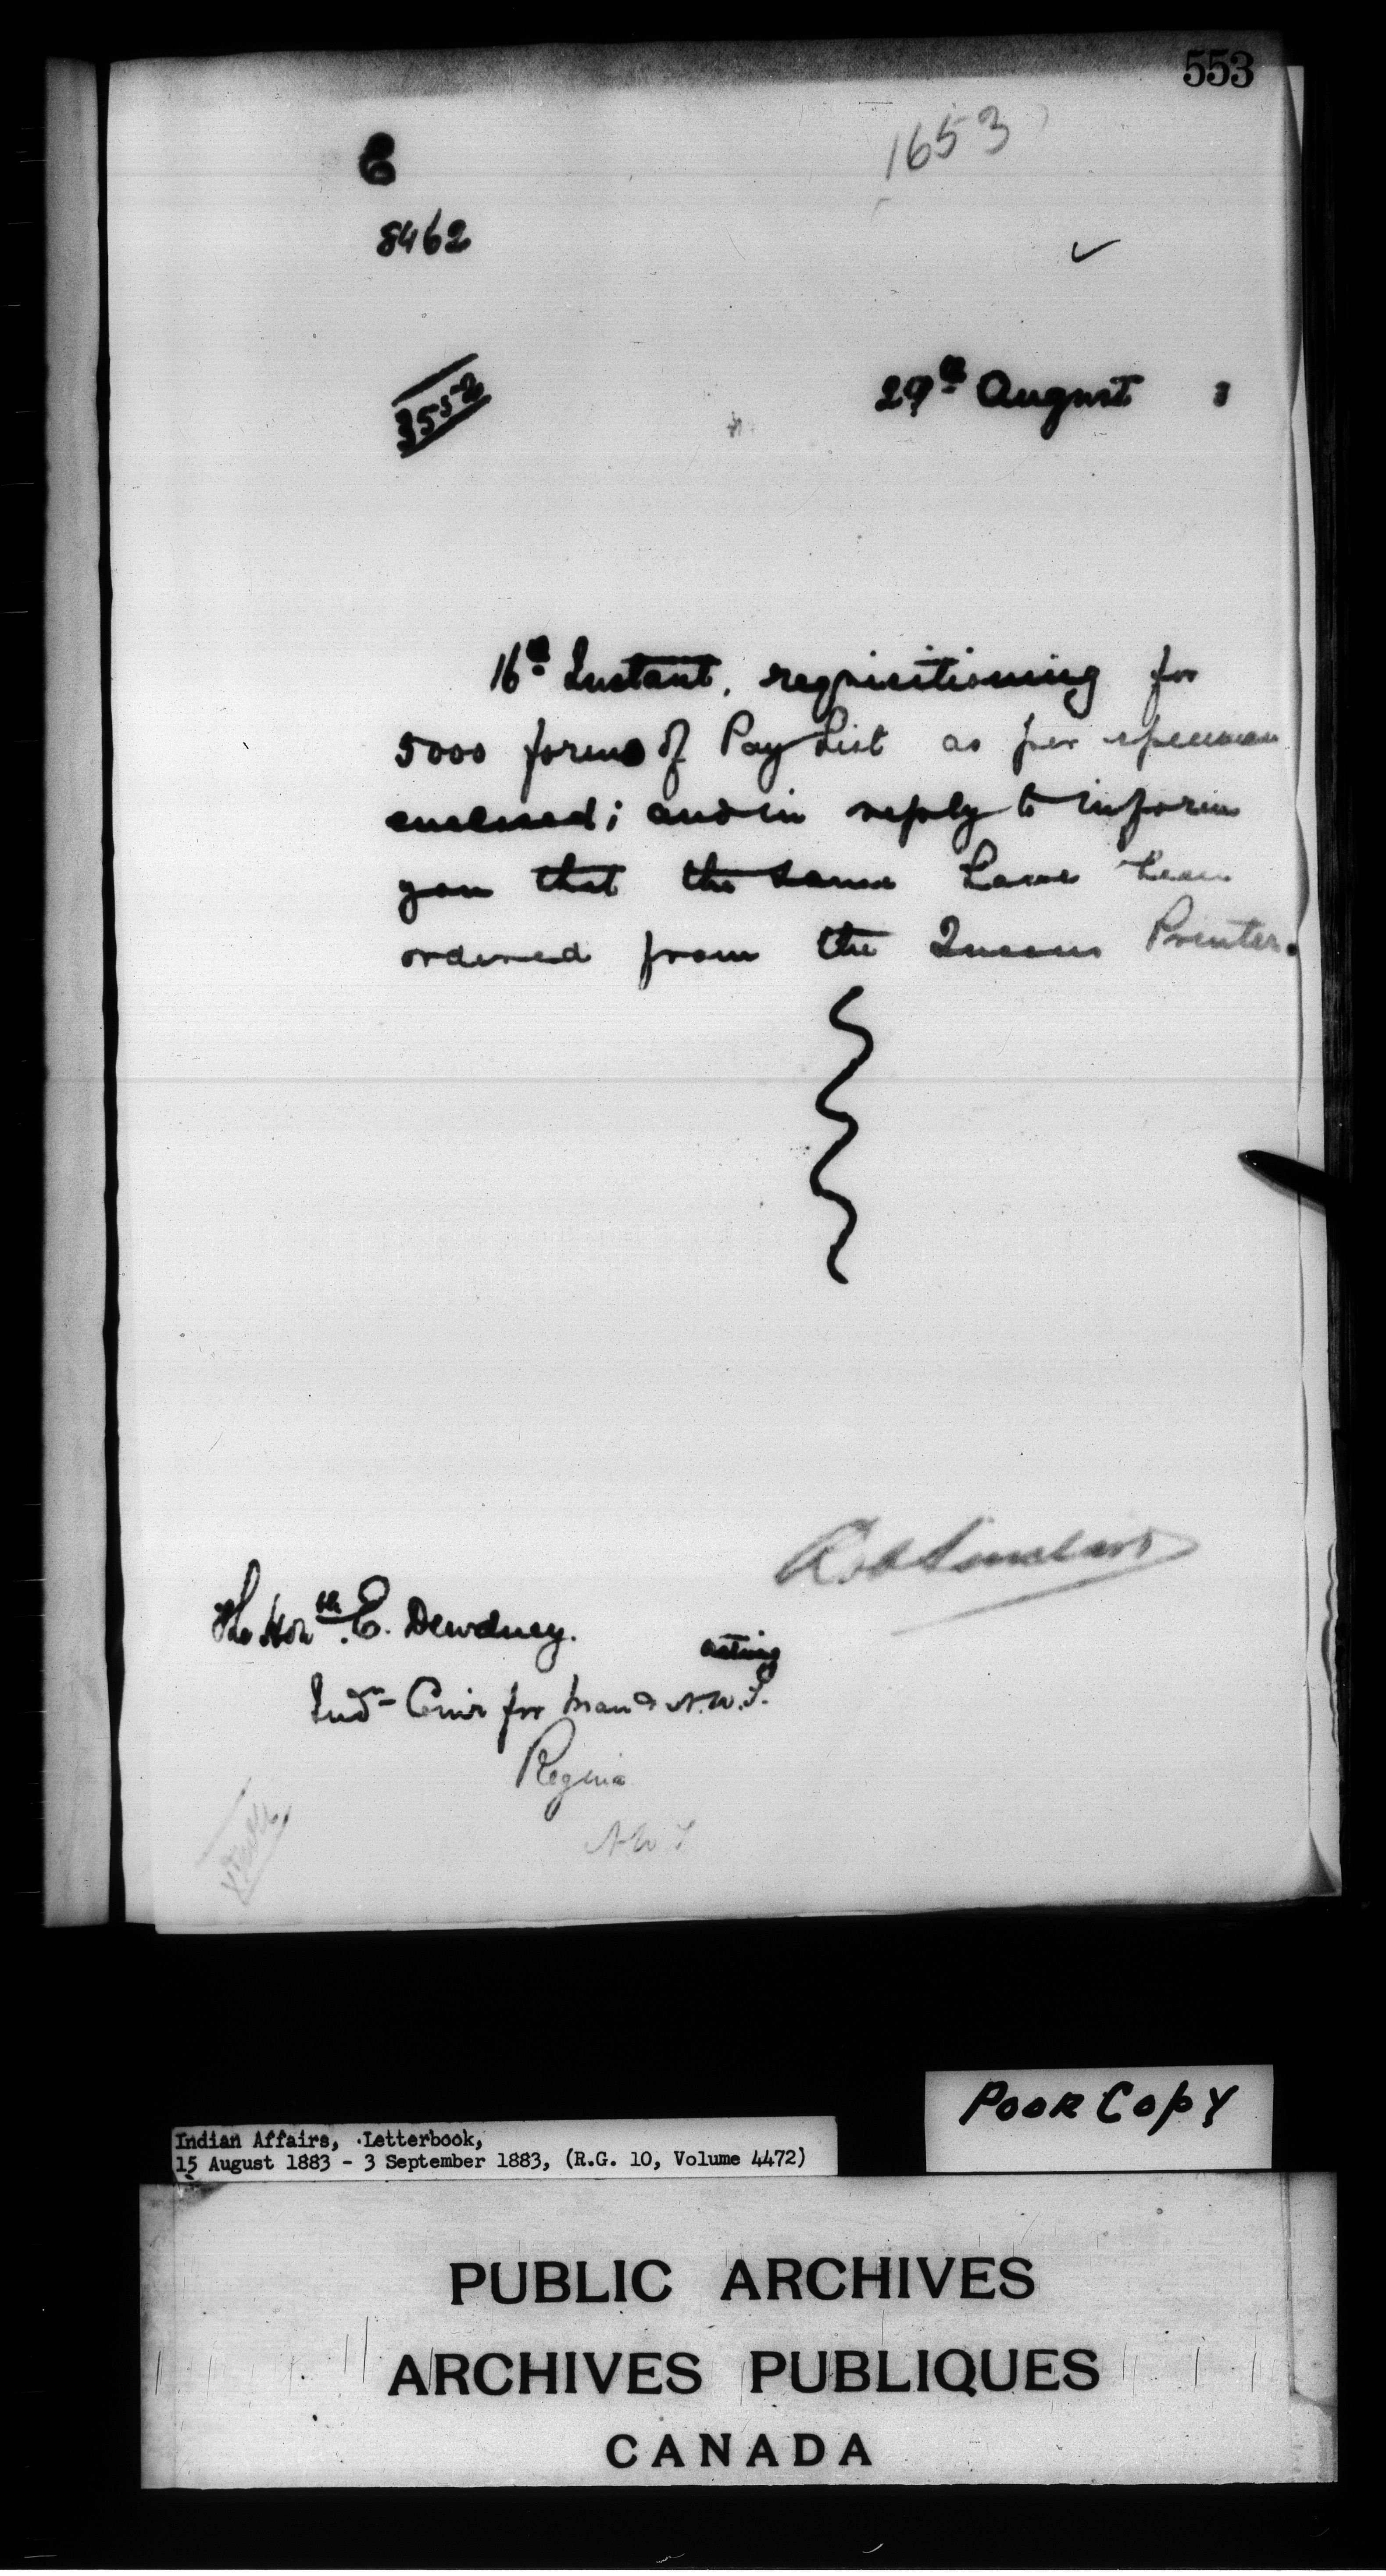 553
1653
E
8462
3552
29th August 3
16th Instant, requisitioning for
5000 forms of Pay List as per specimen
enclosed; and in reply to inform
you that the same have been
ordered from the Queens Printer.
Rob Sinclair
acting
The Honble. E. Dewdney.
Indn Comr for Man & N.W.T.
Regina
N W T
POOR COPY
Indian Affairs, Letterbook,
15 August 1883 - 3 September 1883, (R.G. 10, Volume 4472)
PUBLIC ARCHIVES
ARCHIVES PUBLIQUES
CANADA